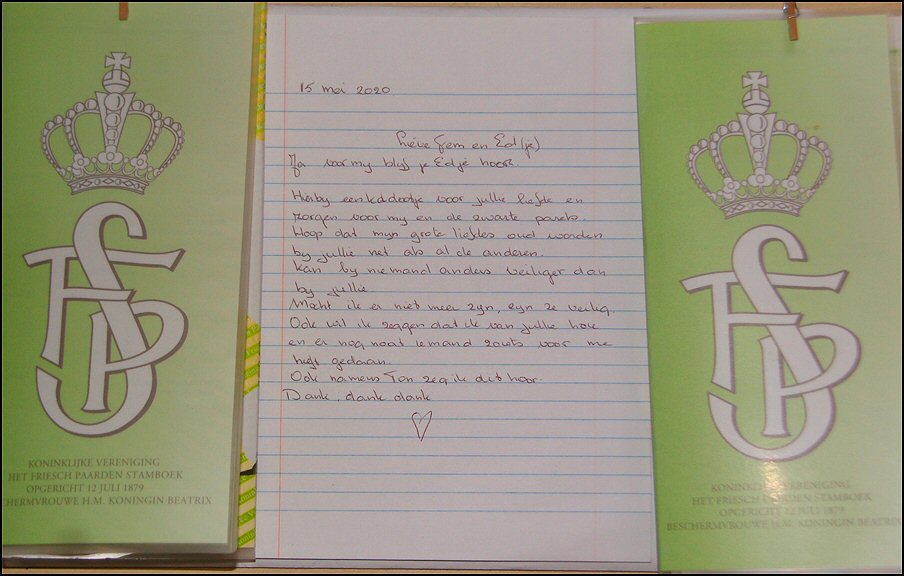 KONINKLIJKE VERENIGING
HET FRIESCH PAARDEN STAMBOEK
OPGERICHT 12 JULI 1879
CHERMVROUWE H.M. KONINGIN BEATRIX
15 mei 2020
Lieve Fem en Ed(je)
Ja voor my blyf je Edje hoor.
Hierby een kadootje voor jullie liefde en
zorgen voor my en de zwarte parels.
Hoop dat myn grote liefdes oud worden
by jullie net als al de anderen.
Kan by niemand anders veiliger dan
by jullie
Mocht ik er niet meer zyn, zyn ze veilig.
Ook wil ik zeggen dat ik van jullie hou
en er nog nooit iemand zoiets voor me
heeft gedaan.
Ook namens Ton zeg ik dit hoor.
Dank, dank dank
KONINKLIJKE VERENIGING
HET FRIESCH PAARDEN STAMBOEK
OPGERICHT 12 JULI 1879
BESCHERMVROUWE H.M. KONINGIN BEATRIX